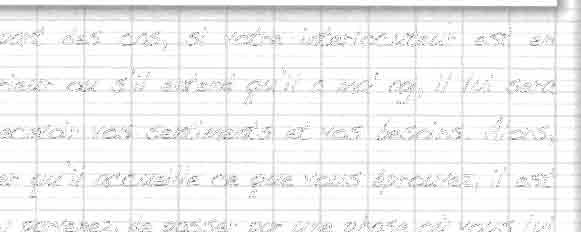 des cas, si votre interlocuteur est en
ou s'il entend qu'il a mal agi, il lui sera
vos sentiments et vos besoins. Alors,
qu'il recueille ce que vous éprouvez, il est
de passer par une phase où vous lui